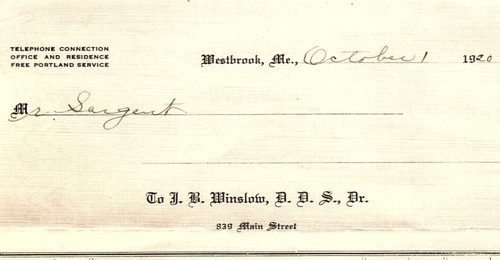 TELEPHONE CONNECTION
OFFICE AND RESIDENCE
FREE PORTLAND SERVICE
Westbrook, Me., October 1 1920
Mr. Sargent
To J. B. Winslow, D. D. S., Dr.
839 Main Street